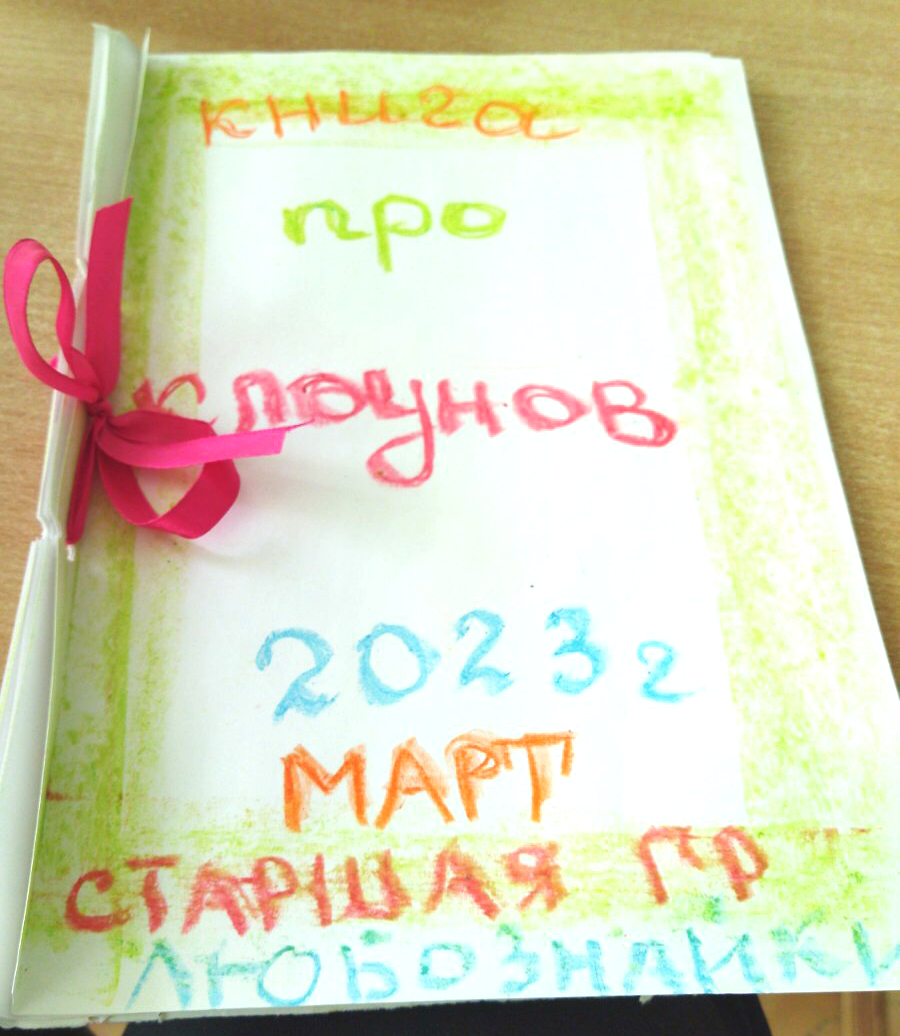 книга
про
клоунов
2023г
МАРТ
СТАРШАЯ ГР
ЛЮБОЗНАЙКИ